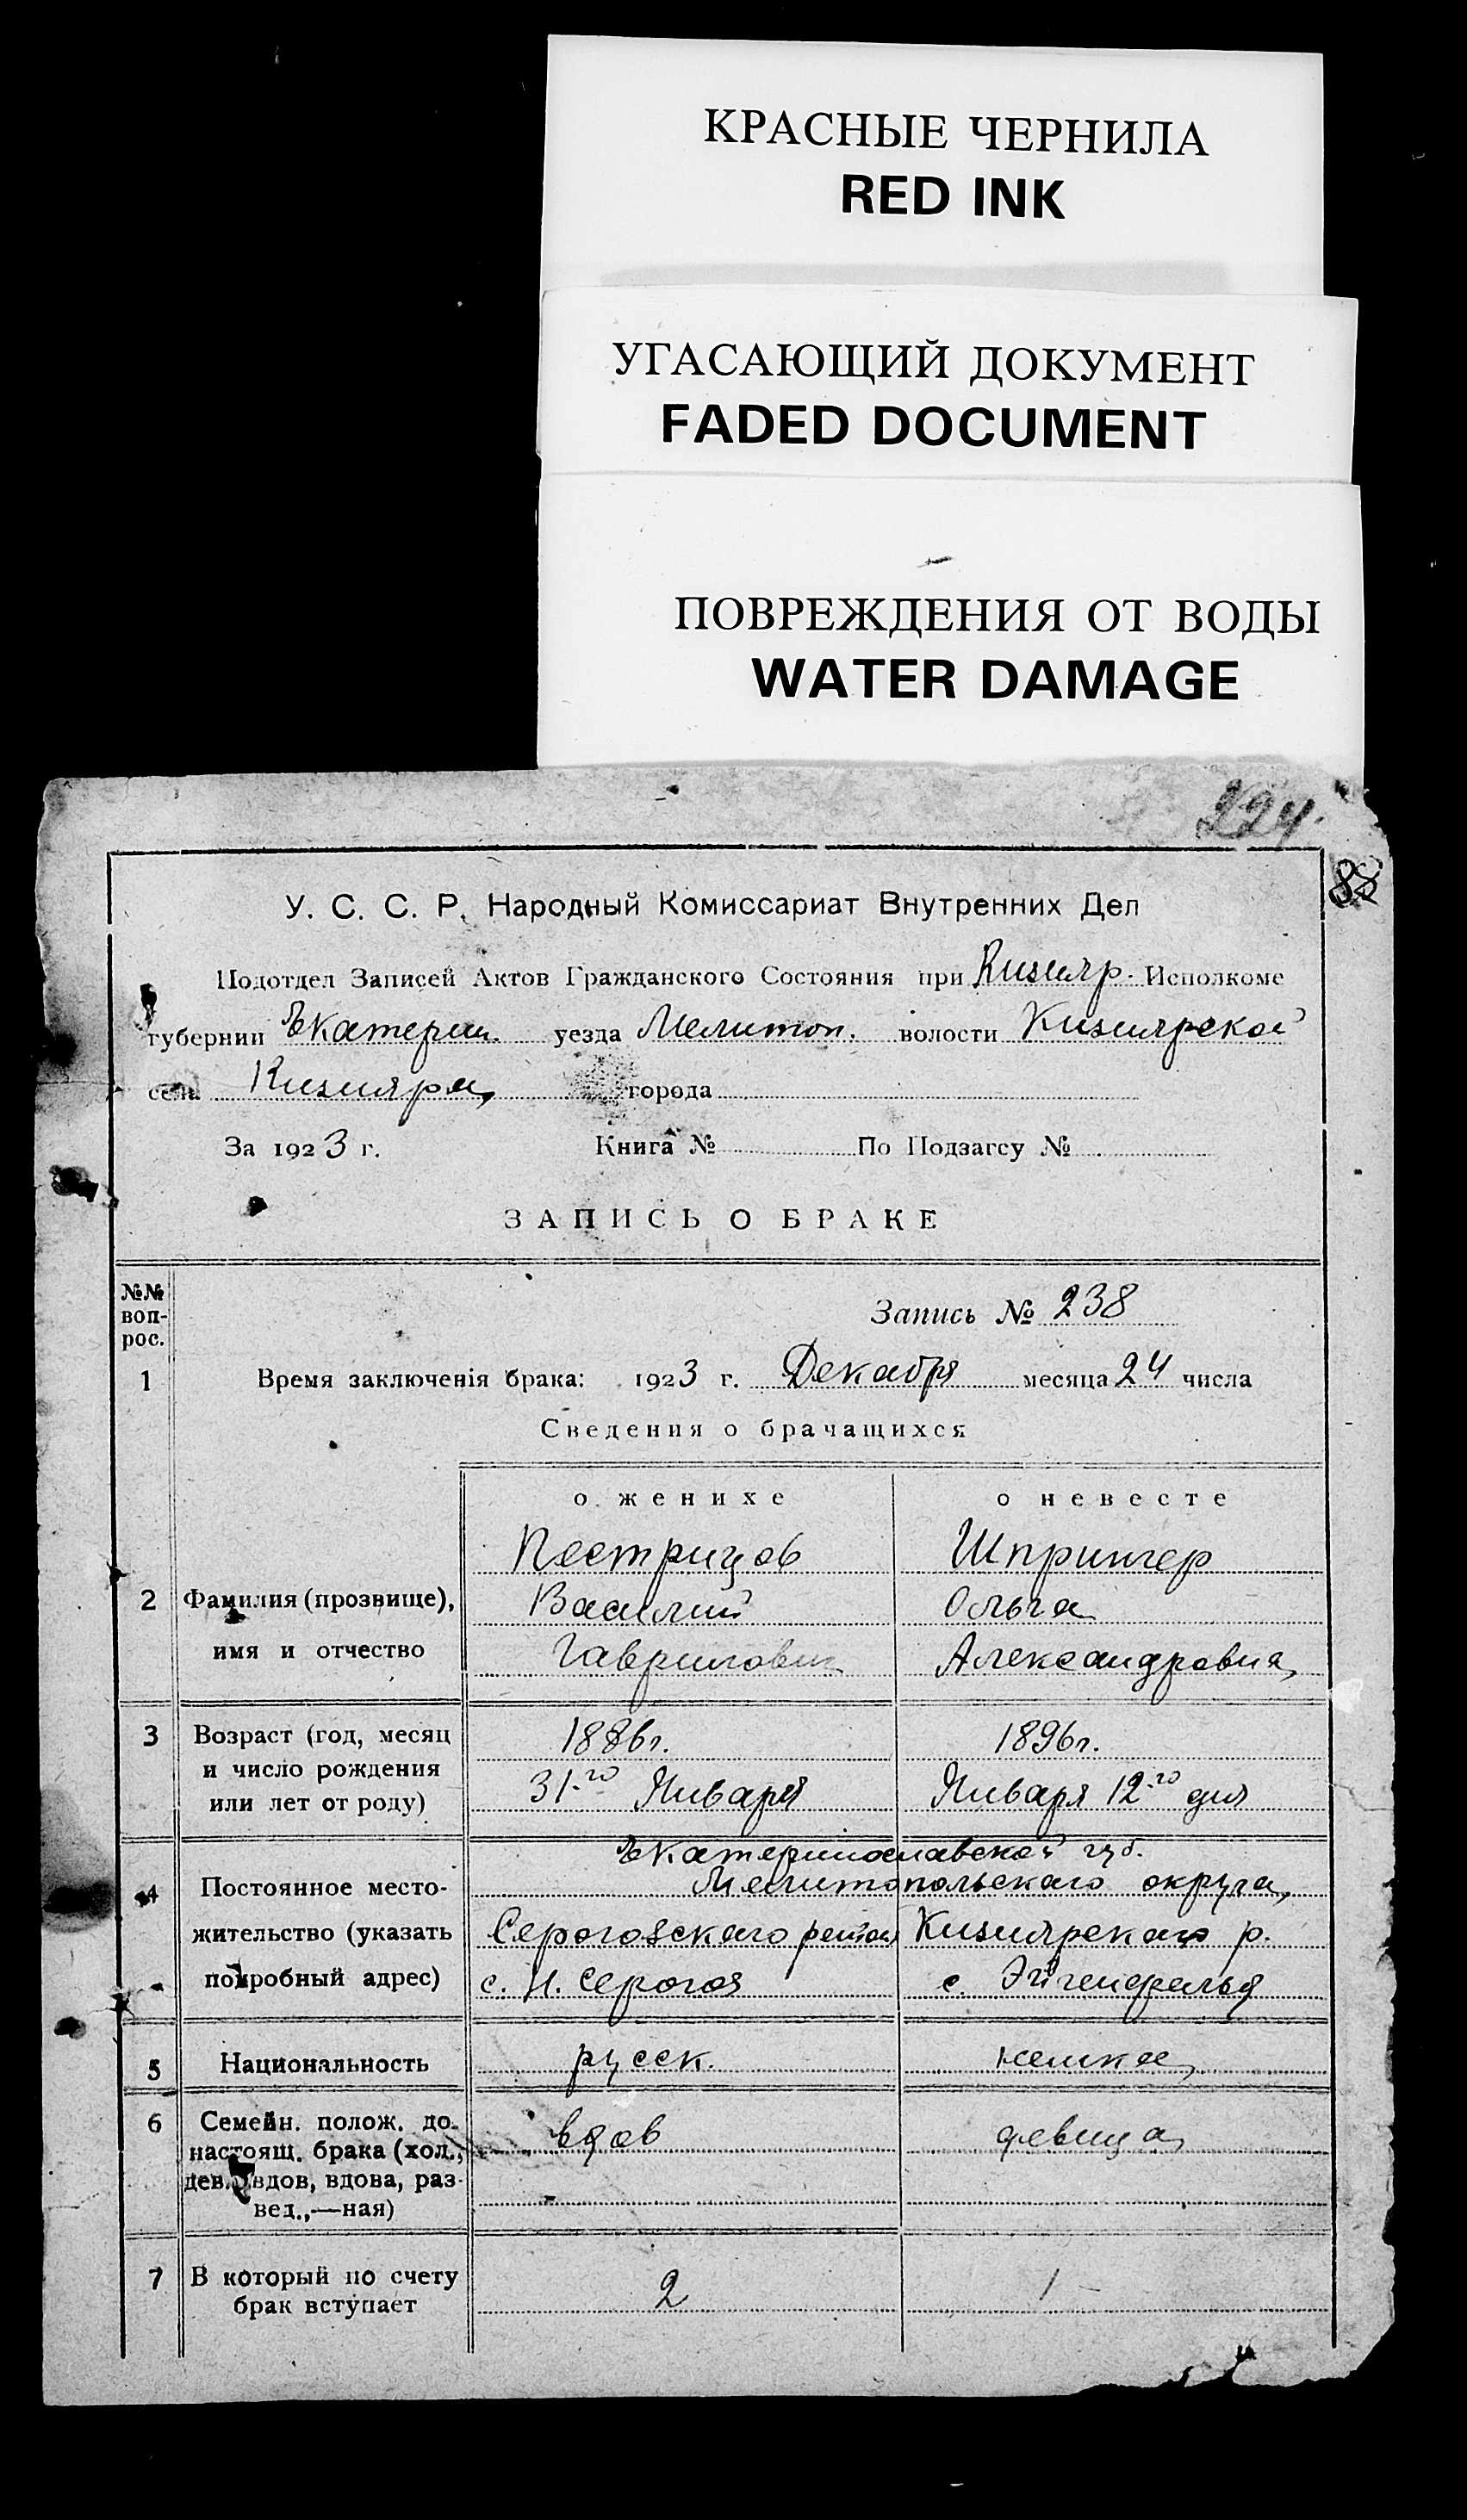 КРАСНЫЕ ЧЕРНИЛА
RED INK
УГАСАЮЩИЙ ДОКУМЕНТ
FADED DOCUMENT
ПОВРЕЖДЕНИЯ ОТ ВОДЫ
WATER DAMAGE
224.
88
У. С. С. Р. Народный Комиссариат Внутренних Дел
Подотдел Записей Актов Гражданского Состояния при Кизияр. Исполкоме
губернии Екатерин. уезда Мелитоп. волости Кизиярской
села Кизияра города
За 1923 г. Книга № По Подзагсу №
ЗАПИСЬ О БРАКЕ
№№ воп-рос.
Запись № 238
1 Время заключенія брака: 1923 г. Декабря месяца 24 числа
Сведения о брачащихся
о женихе о невесте
Пестрицов Шпрингер
2 Фамилия (прозвище), Василий Ольга
имя и отчество Гаврилович Александровна
3 Возраст (год, месяц 1886г. 1896г.
и число рождения
или лет от роду) 31-го Января Января 12-го дня
Екатеринославской губ.
4 Постоянное место- Мелитопольскаго округа,
жительство (указать Серогозскаго район Кизиярскаго р.
подробный адрес) с. Н. Серогоз с. Эйгенфельд
5 Национальность русск. немка
6 Семейн. полож. до вдов девица
настоящ. брака (хол.,
дев., вдов, вдова, раз-
вед.,—ная)
7 В который по счету 2 1
брак вступает